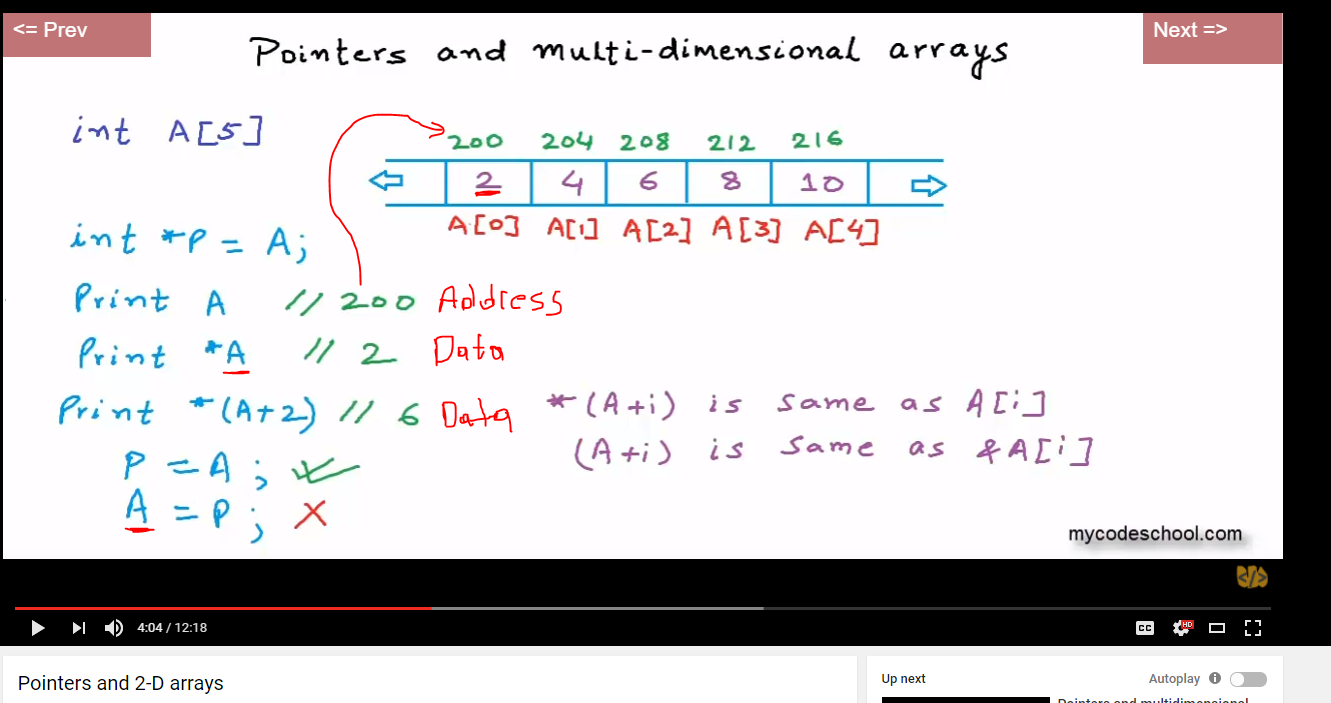 <= Prev
Next =>
Pointers and multi-dimensional arrays
int A[5]
200 204 208 212 216
2 4 6 8 10
A[0] A[1] A[2] A[3] A[4]
int *P = A;
Print A // 200 Address
Print *A // 2 Data
Print *(A+2) // 6 Data
*(A+i) is same as A[i]
(A+i) is same as &A[i]
P = A;
A = P; X
mycodeschool.com
</>
4:04 / 12:18
CC
HD
Pointers and 2-D arrays
Up next
Autoplay
Pointers and multidimensional